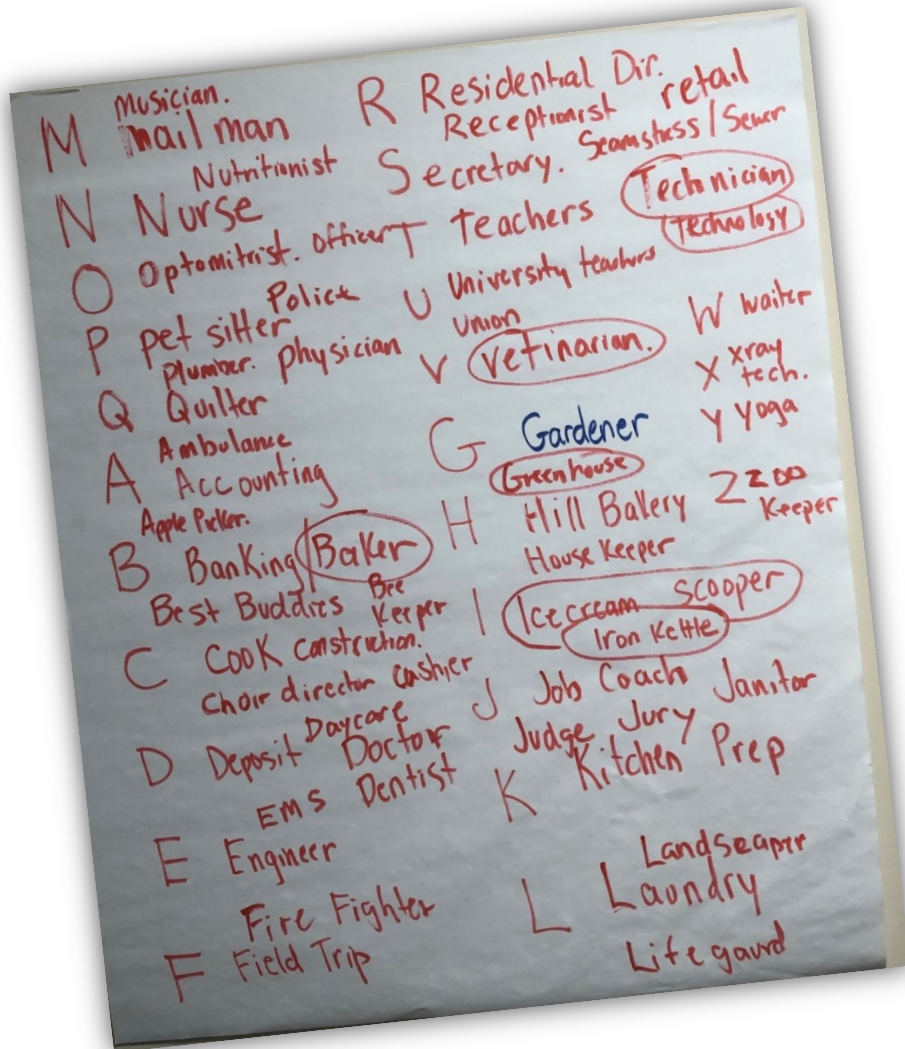 Musician.
M mailman
Nutritionist
N Nurse
O Optomitrist. officer
Police
P pet sitter
Plumber. physician
Q Quilter
Ambulance
A Accounting
Apple Picker.
B Banking/Baker
Best Buddies Bee Keeper
C Cook construction.
Choir director Cashier
Daycare
D Deposit Doctor
EMS Dentist
E Engineer
Fire Fighter
F Field Trip
R Residential Dir.
Receptionist retail
S Secretary. Seamstress/Sewer
T Teachers Technician
Technology
U University teachers
Union
V Vetinarian.
W Waiter
X xray
tech.
Y Yoga
G Gardener
Greenhouse
Z Zoo
Keeper
H Hill Bakery
House Keeper
I Icecream scooper
Iron Kettle
J Job Coach Janitor
Judge Jury
K Kitchen Prep
Landscaper
L Laundry
Lifegaurd